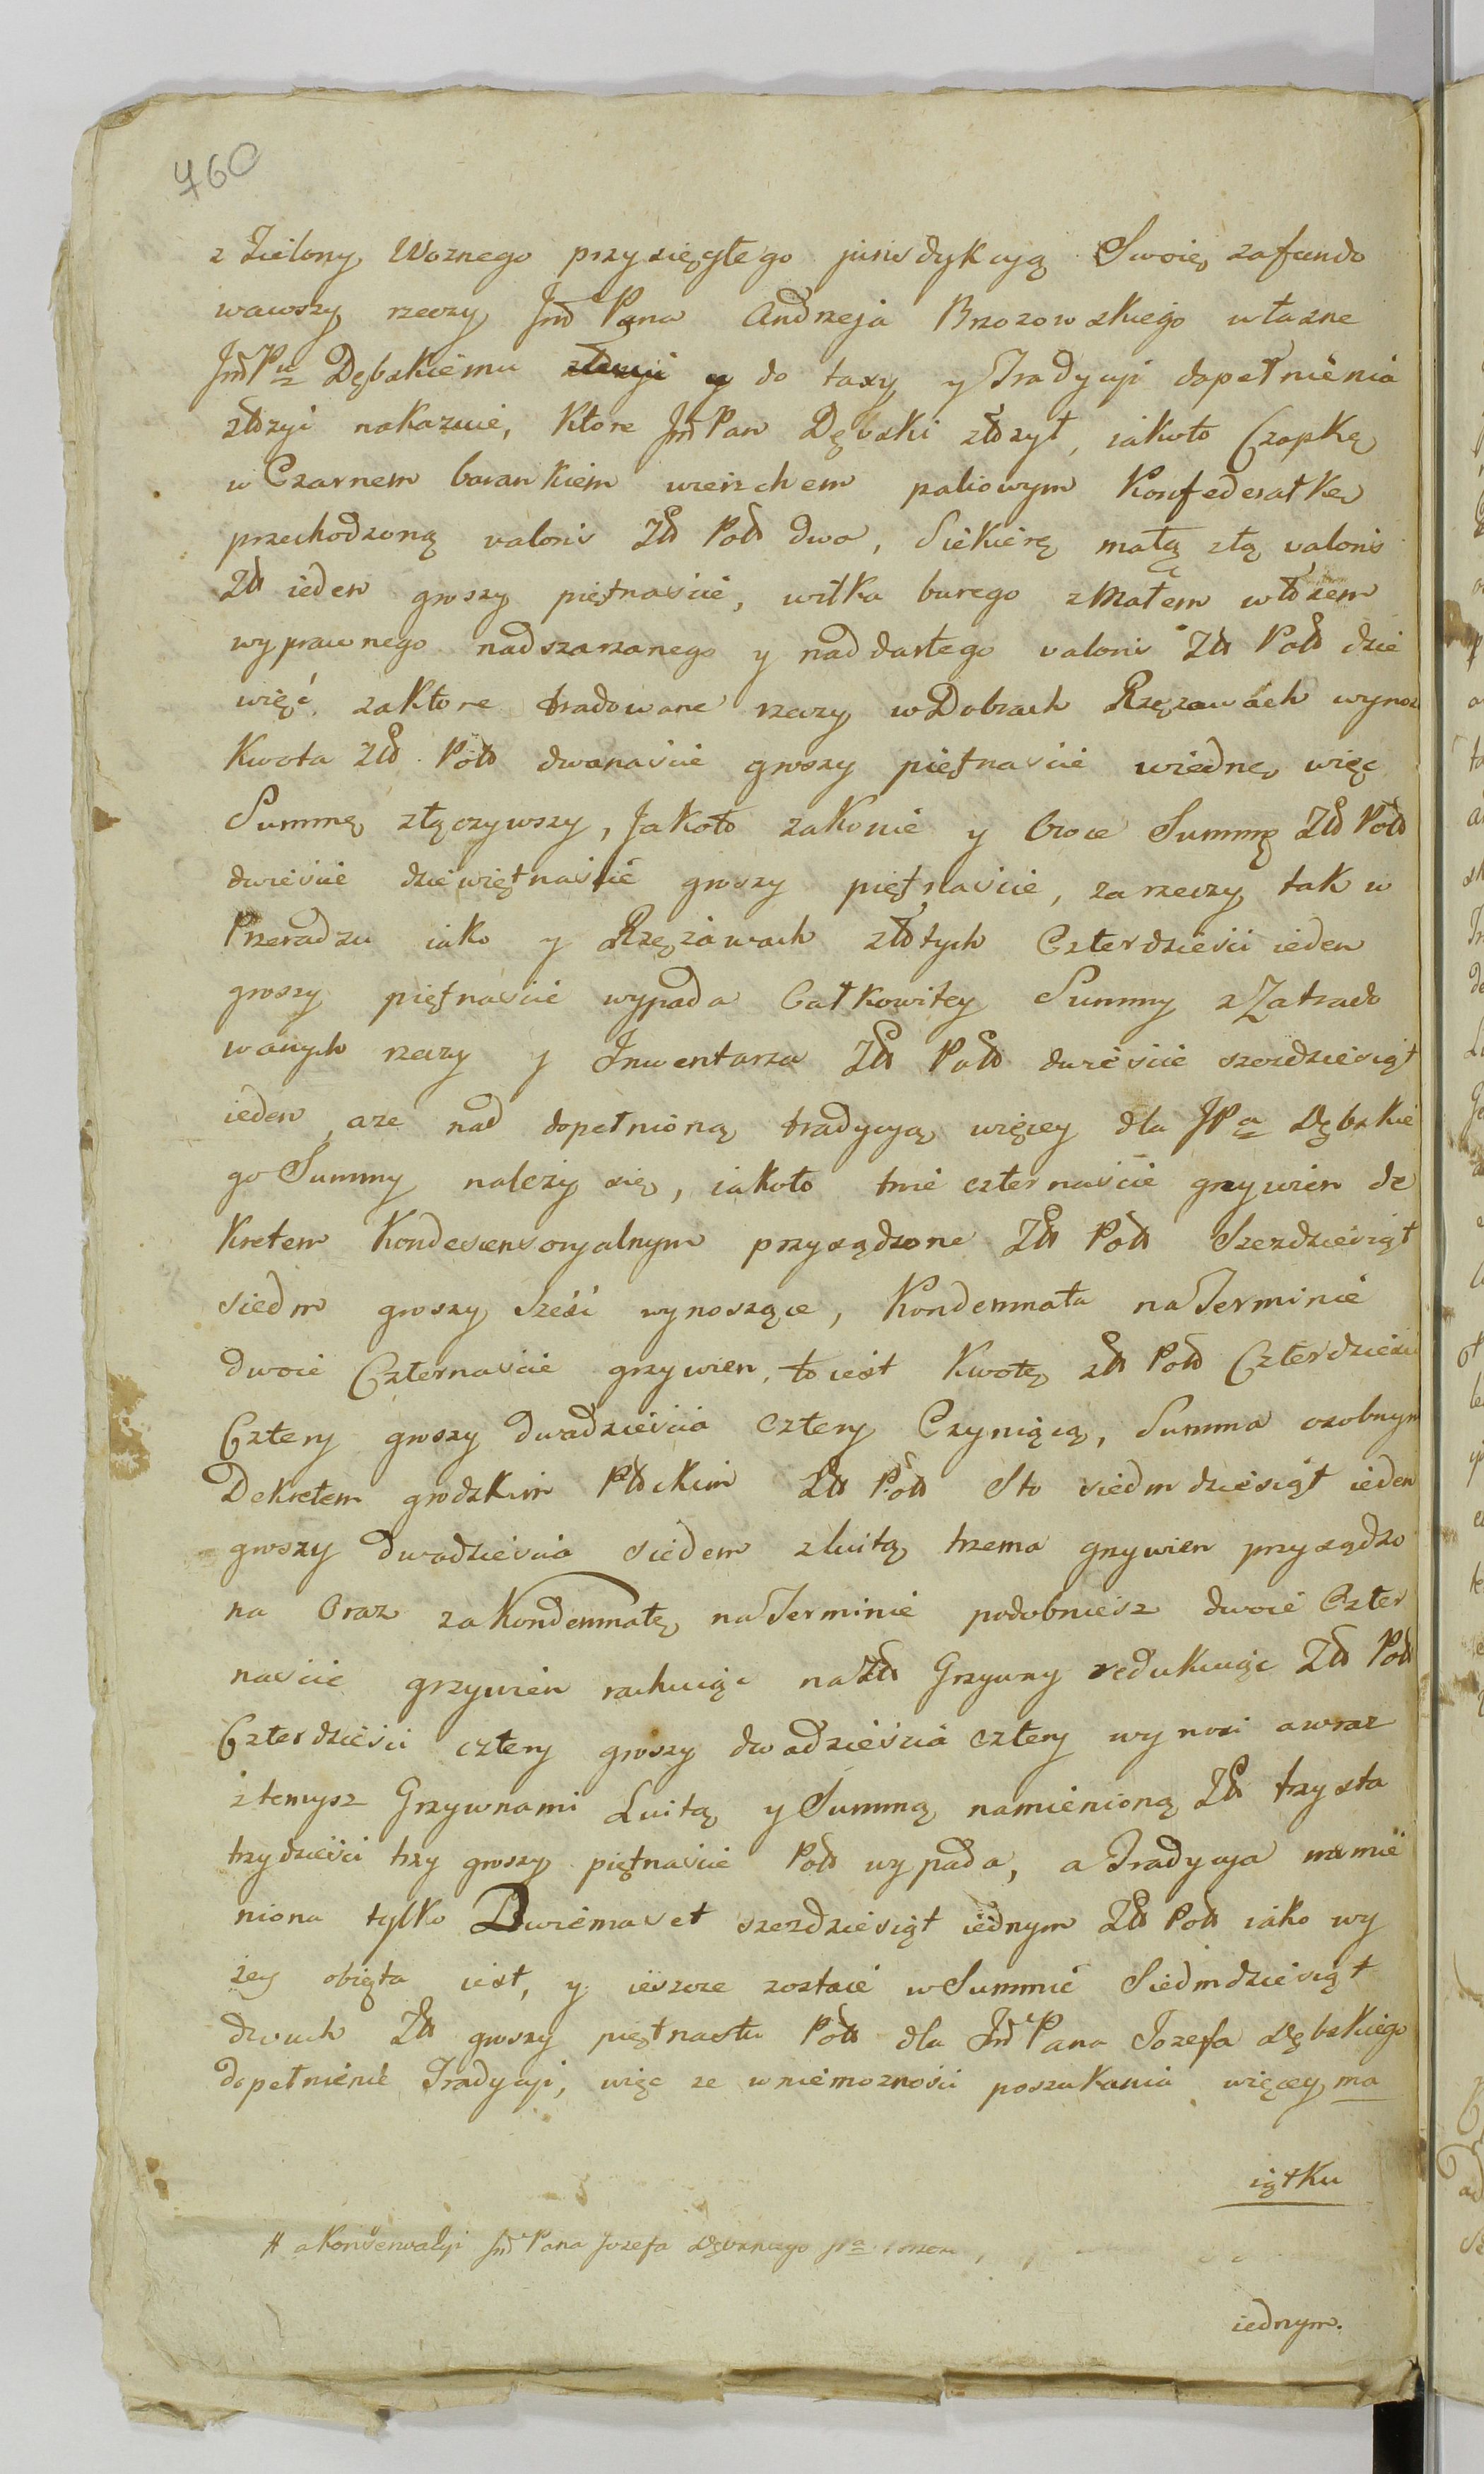 760
z Zielony Woznego przysięgłego jurisdykcyą Swoię zafundo
wawszy rzeczy Jmć Pana Andrzeja Brzozowskiego własne
JmćPu Dębskiemu do taxy y Tradycyi dopełnienia
złożyć nakazuie, które Jmć Pan Dębski złożył, iakoto Czapkę
w Czarnem barankiem wierzchem paliowym Konfederatkę
przechodzoną valoris Zło Polo dwa, Siekierę małą złą valoris
Zło ieden groszy piętnascie, wilka burego z Małem włosem
wyprawnego nadszarzanego y naddartego valoris Zło Polo dzie
więć, zaktore tradowane rzeczy w Dobrach Rzężawach wynosi
Kwota Zło Polo dwanascie groszy piętnascie wiednę więc
Summę złączywszy, Jakoto zakonie y Owce Summę Zło Polo
dwiescie dziewiętnaście groszy piętnascie, zarzeczy tak w
Przeradzu iako y Rzężawach złotych Czterdziesci ieden
groszy piętnascie wypada Całkowitey Summy z Zatrado
wanych rzeczy y Inwentarza Zło Polo dwiescie szezdziesiąt
ieden, aże nad dopełnioną tradycyą więcey dla JPa Dębskie
go Summy należy się, iakoto trzie czternaście grzywien de
kretem Kondescensoryalnym przysądzone Zło Polo Szezdziesiąt
siedm groszy sześć wynoszące, Kondemnata na Terminie
dwoie Czternascie grzywien, to iest Kwotę zło Polo Czterdziesci
Cztery groszy dwadziescia cztery Czyniącą, Summa osobnym
Dekretem grodzkim Płockim Zło Polo Sto siedmdziesiąt ieden
groszy dwadziescia siedem zluitą trzema grzywien przysądzo
na Oraz za Kondemnatę na Terminie podobniesz dwoie Czter
nascie grzywien rachuiąc na Zło Grzywny redukuiąc Zło Polo
Czterdziesci cztery groszy dwadzieścia cztery wynosi awraz
ztemysz Grzywnami Luitą y Summą namienioną Zło trzysta
trzydzieści trzy groszy piętnascie Polo wypada, a Tradycya namie
niona tylko Dwiemaset szezdziesiąt iednym Zło Polo iako wy
żey obięta iest, y ieszcze zostaie w Summie Siedmdziesiąt
dwuch Zło groszy piętnastu Polo dla Jmć Pana Jozefa Dębskiego
dopełnienie Tradycyi, więc ze w niemożności poszukania więcey ma
iątku
# akonserwacyi Jmć Pana Jozefa Dębskiego
iednym.